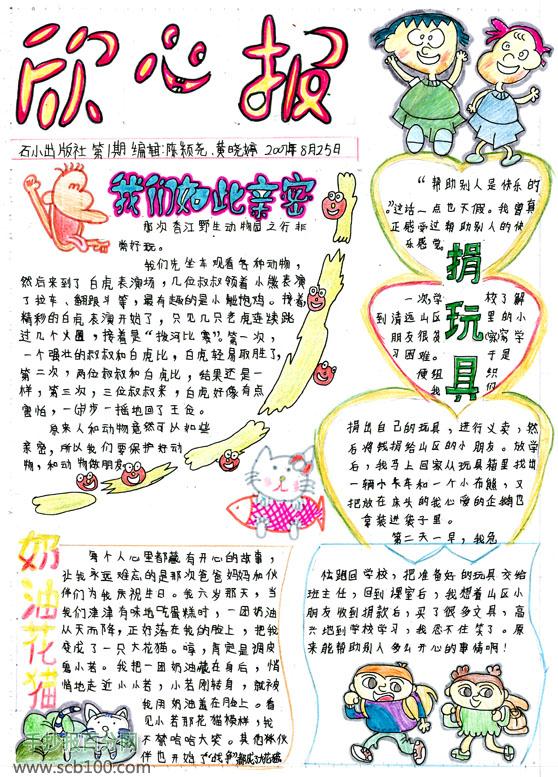 欣心报
石小出版社 第1期 编辑:陈颖尧、黄晓婷 2007年8月25日
我们如此亲密
那次香江野生动物园之行非
常好玩。
我们先坐车观看各种动物,
然后来到了白虎表演场,几位叔叔领着小熊表演
了拉车、翻跟斗等,最有趣的是小熊抱鸡。接着
精彩的白虎表演开始了,只见几只老虎连续跳
过几个火圈,接着是“拔河比赛”。第一次,
一个强壮的叔叔和白虎比,白虎轻易取胜了,
第二次,两位叔叔和白虎比,结果还是一
样,第三次,三位叔叔来,白虎好像有点
害怕,一步一摇地回了王位。
原来人和动物竟然可以如些
亲密,所以我们要保护好动
物,和动物做朋友
捐玩具
“帮助别人是快乐的
”这话一点也不假。我曾真
正感受过帮助别人的快
乐感觉。
一次学校了解
到清远山区里的小
朋友很
习困难。于是
便组织
我们
捐出自己的玩具,进行义卖,然
后将钱捐给山区的小朋友。放学
后,我马上回家从玩具箱里找出
一辆小卡车和一个小布熊,又
把放在床头的我心爱的企鹅也
拿装进袋子里。
第二天一早,我急
忙跑回学校,把准备好的玩具交给
班主任,回到课室后,我想着山区小
朋友收到捐款后,买了很多文具,高
兴地到学校学习,我忍不住笑了。原
来能帮助别人多么开心的事情啊!
奶油花猫
每个人心里都藏有开心的故事,
让我永远难忘的是那次爸爸妈妈和伙
伴们为我庆祝生日。我六岁那天,当
我们津津有味地吃蛋糕时,一团奶油
从天而降,正好落在我的脸上,把我
变成了一只大花猫。哼,肯定是调皮
鬼小若。我把一团奶油藏在身后,悄
悄地走近小小若,小若刚转身,就被
我用奶油盖在脸上。看
见小若那花猫模样,我
不禁哈哈大笑。其他伙伴
也开始了“战争”都成了大花猫
手抄报百人网
www.scb100.com